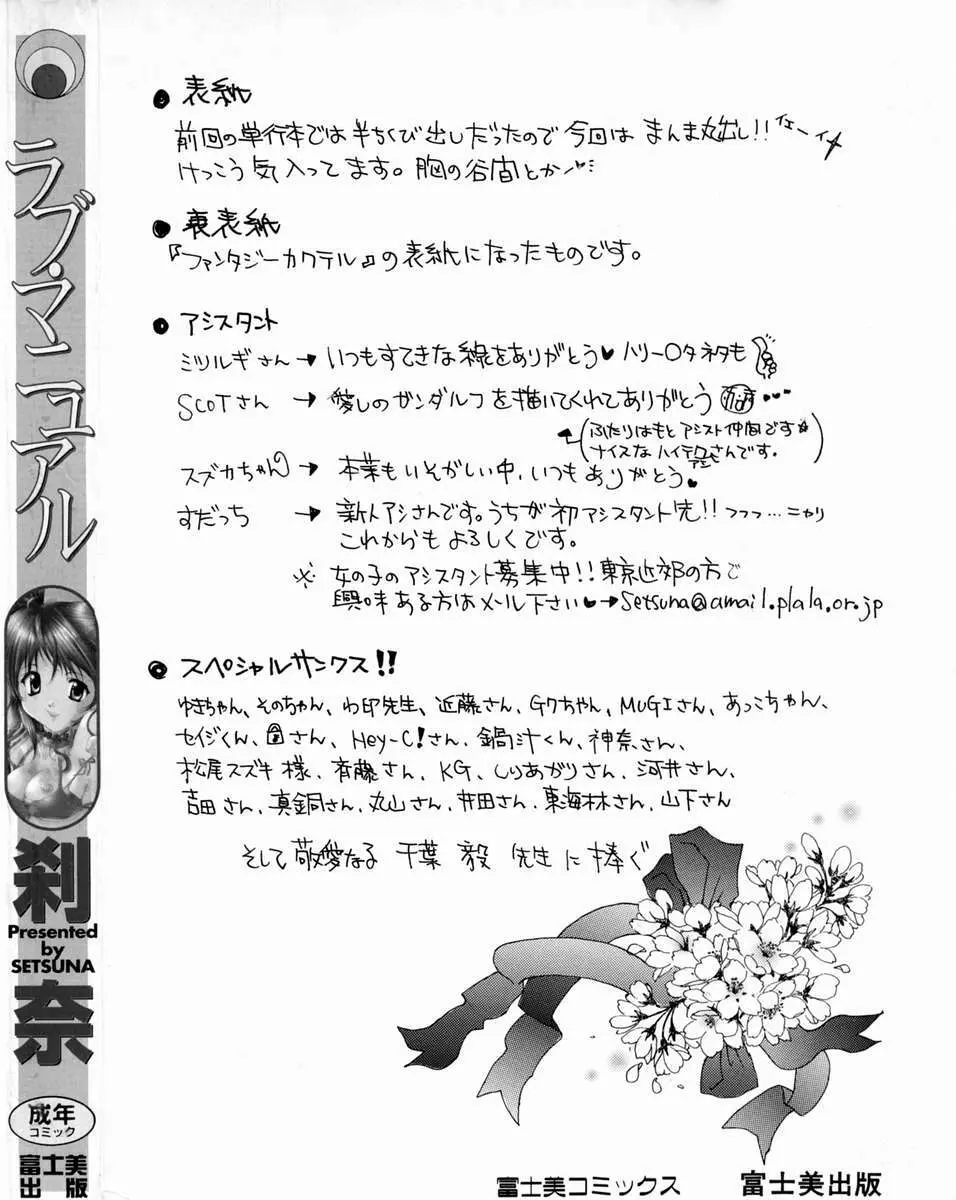 ラブ・マニュアル
刹奈
Presented
by
SETSUNA
成年
コミック
富士美
出版
●表紙
前回の単行本では半ちくび出しだったので今回はまんま丸出し!!イエーイ
けっこう気入ってます。胸の谷間とか
●裏表紙
『ファンタジーカクテル』の表紙になったものです。
●アシスタント
ミツルギさん→いつもすてきな線をありがとう♥ハリー〇タネタも
SCOTさん→愛しのガンダルフを描いてくれてありがとう
(ふたりはもとアシスト仲間です☆
ナイスなハイテクアシさんです。)
スズカちゃん→本業もいそがしい中、いつもありがとう♥
すだっち→新人アシさんです。うちが初アシスタント先!!フフフ…ニヤリ
これからもよろしくです。
※女の子のアシスタント募集中!!東京近郊の方で
興味ある方はメール下さい♥→setsuna@amail.plala.or.jp
●スペシャルサンクス!!
ゆきちゃん、そのちゃん、わ印先生、近藤さん、Gクちゃん、MUGIさん、あっこちゃん、
セイジくん、さん、Hey-C!さん、鍋汁くん、神奈さん、
松尾スズキ様、斉藤さん、KG、しりあがりさん、河井さん、
吉田さん、真銅さん、丸山さん、井田さん、東海林さん、山下さん
そして敬愛なる千葉毅先生に捧ぐ
富士美コミックス 富士美出版